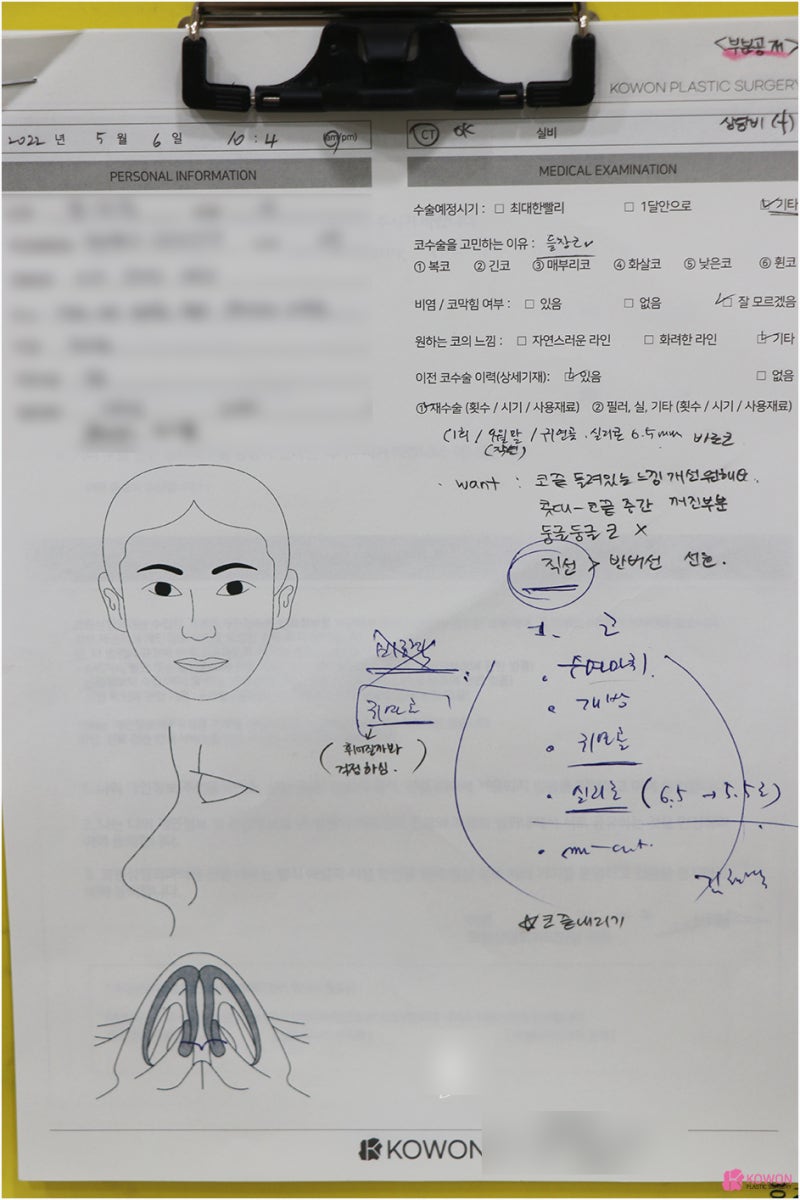 <부분공개>
KOWON PLASTIC SURGERY
2022 년 5 월 6 일 10 : 4 (am/pm)
CT OK 실비 상담비 (4)
PERSONAL INFORMATION
MEDICAL EXAMINATION
수술예정시기 : □ 최대한빨리 □ 1달안으로 ☑ 기타
코수술을 고민하는 이유 : 들창코
① 복코 ② 긴코 ③ 매부리코 ④ 화살코 ⑤ 낮은코 ⑥ 휜코
비염 / 코막힘 여부 : □ 있음 □ 없음 ☑ 잘 모르겠음
원하는 코의 느낌 : □ 자연스러운 라인 □ 화려한 라인 ☑ 기타
이전 코수술 이력(상세기재): ☑ 있음 □ 없음
① 재수술 (횟수 / 시기 / 사용재료) ② 필러, 실, 기타 (횟수 / 시기 / 사용재료)
(1회 / 9월말 / 귀연골, 실리콘 6.5mm 바른코
(작년)
· want : 코끝 들려있는 느낌 개선원해요.
콧대-코끝 중간 꺼진부분
둥글둥글 코 X
직선 > 반버선 선호.
1. 코
실리콘
귀연골
(휘어질까봐
걱정하심.)
· 개방
· 귀연골
· 실리콘 (6.5 → 5.5로)
☆코끝내리기
KOWON
KOWON
PLASTIC SURGERY